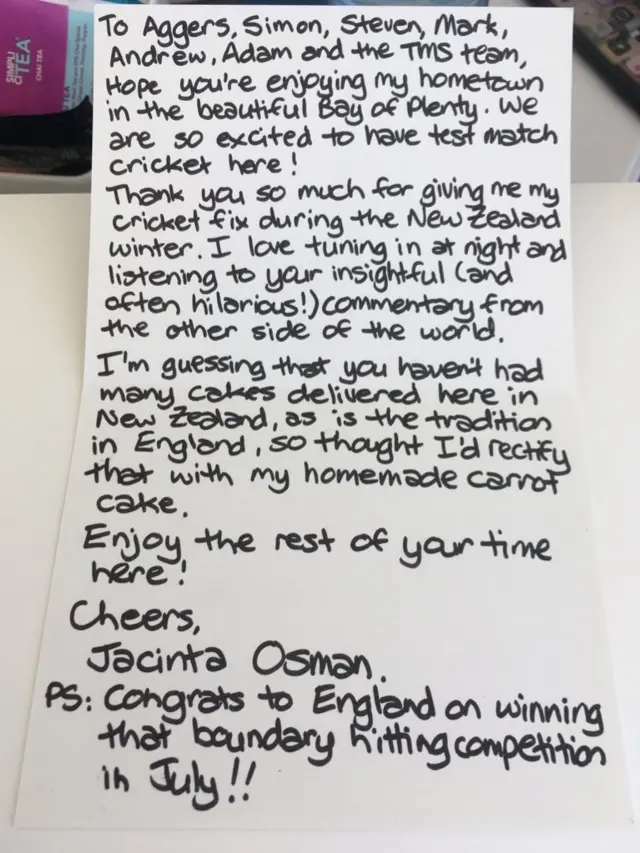 SIMPLY
TEA
CHAI TEA
To Aggers, Simon, Steven, Mark,
Andrew, Adam and the TMS team,
Hope you're enjoying my hometown
in the beautiful Bay of Plenty. We
are so excited to have test match
cricket here!
Thank you so much for giving me my
cricket fix during the New Zealand
winter. I love tuning in at night and
listening to your insightful (and
often hilarious!) commentary from
the other side of the world.
I'm guessing that you haven't had
many cakes delivered here in
New Zealand, as is the tradition
in England, so thought I'd rectify
that with my homemade carrot
cake.
Enjoy the rest of your time
here!
Cheers,
Jacinta Osman.
PS: Congrats to England on winning
that boundary hitting competition
in July!!